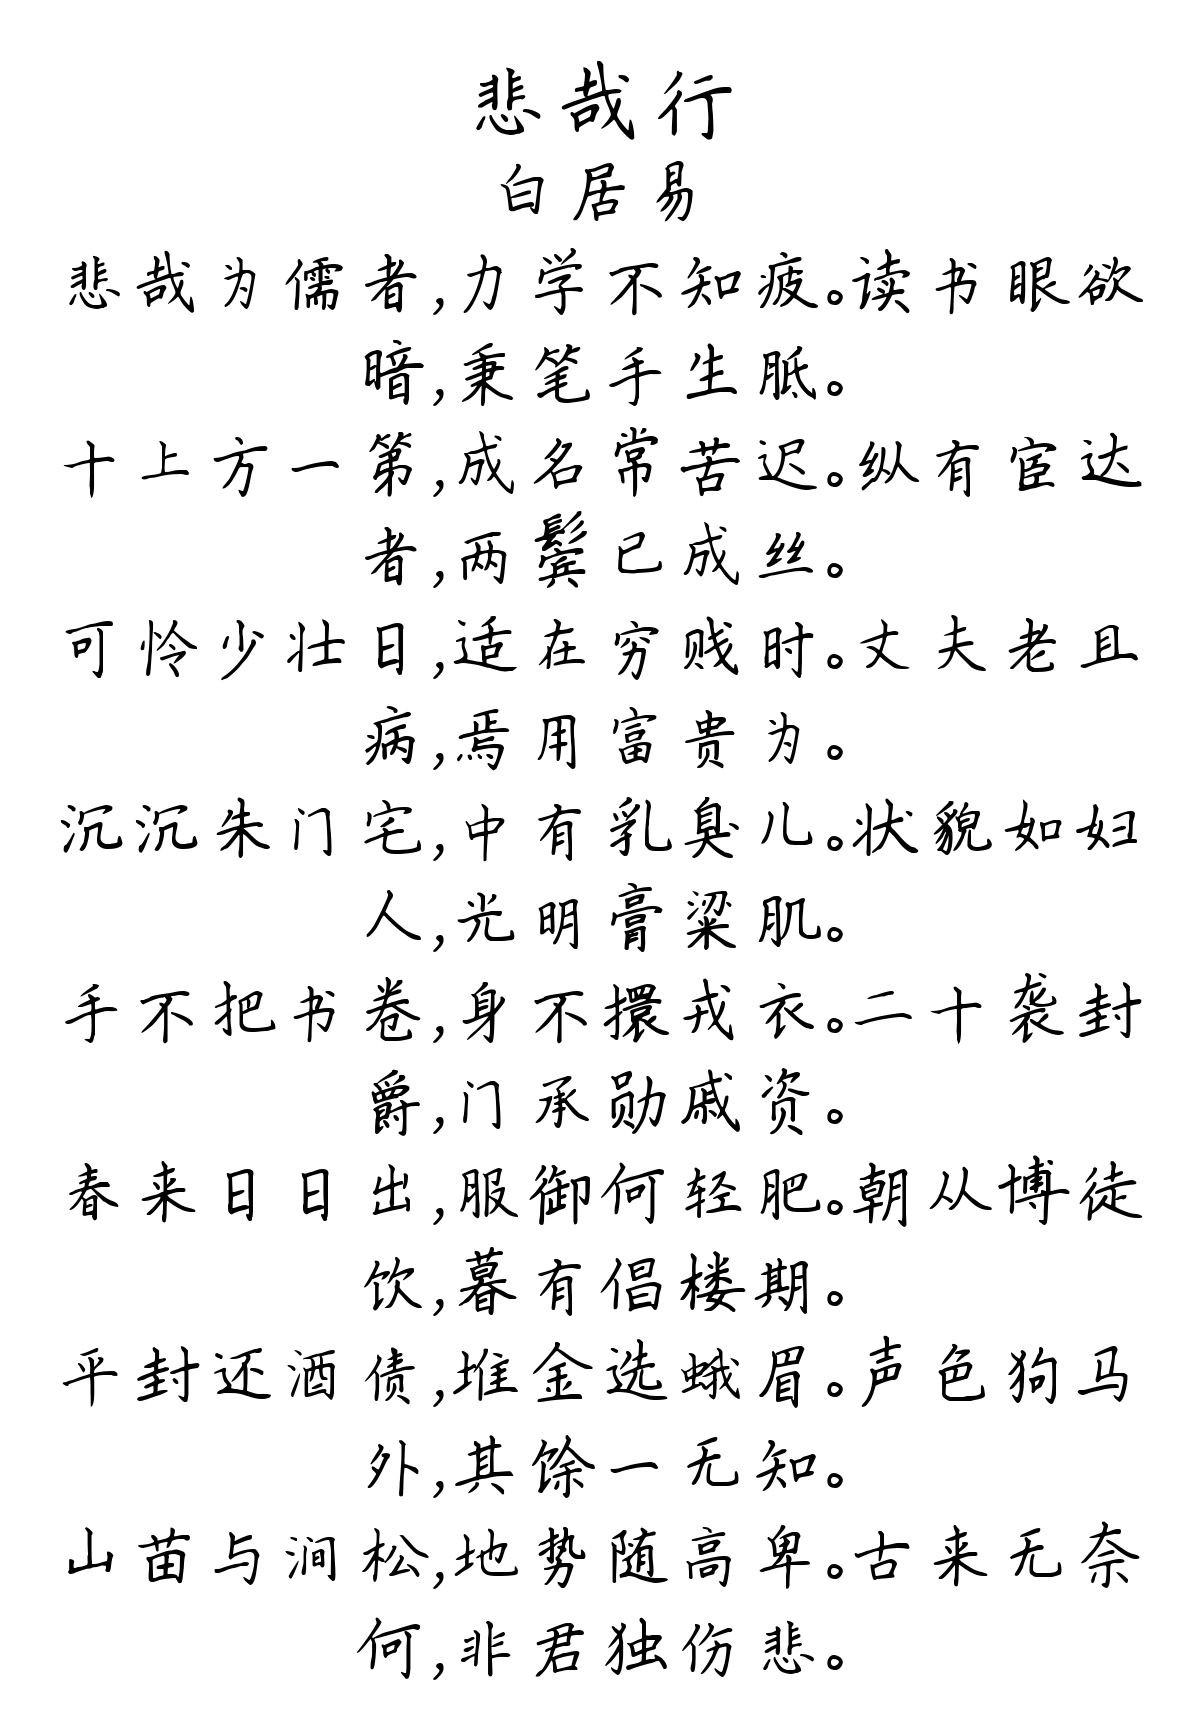 悲哉行
白居易
悲哉为儒者,力学不知疲。读书眼欲
暗,秉笔手生胝。
十上方一第,成名常苦迟。纵有宦达
者,两鬓已成丝。
可怜少壮日,适在穷贱时。丈夫老且
病,焉用富贵为。
沉沉朱门宅,中有乳臭儿。状貌如妇
人,光明膏粱肌。
手不把书卷,身不擐戎衣。二十袭封
爵,门承勋戚资。
春来日日出,服御何轻肥。朝从博徒
饮,暮有倡楼期。
平封还酒债,堆金选蛾眉。声色狗马
外,其馀一无知。
山苗与涧松,地势随高卑。古来无奈
何,非君独伤悲。